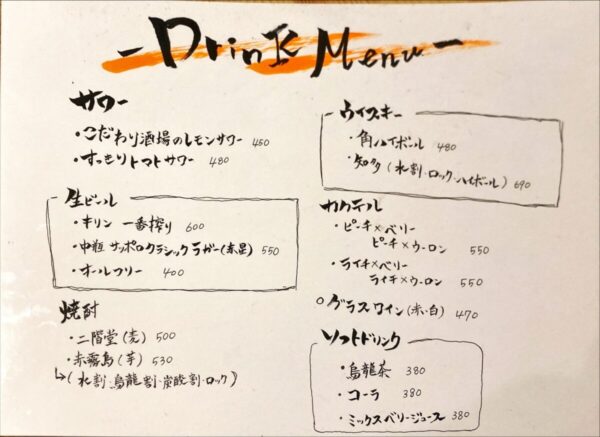 - Drink Menu -
サワー
・こだわり酒場のレモンサワー 450
・すっきりトマトサワー 480
生ビール
・キリン 一番搾り 600
・中瓶 サッポロクラシックラガー(赤星) 550
・オールフリー 400
焼酎
・二階堂(麦) 500
・赤霧島(芋) 530
↳(水割・烏龍割・炭酸割・ロック)
ウイスキー
・角ハイボール 480
・知多(水割・ロック・ハイボール) 690
カクテル
・ピーチ×ベリー
ピーチ×ウーロン 550
・ライチ×ベリー
ライチ×ウーロン 550
○グラスワイン(赤・白) 470
ソフトドリンク
・烏龍茶 380
・コーラ 380
・ミックスベリージュース 380